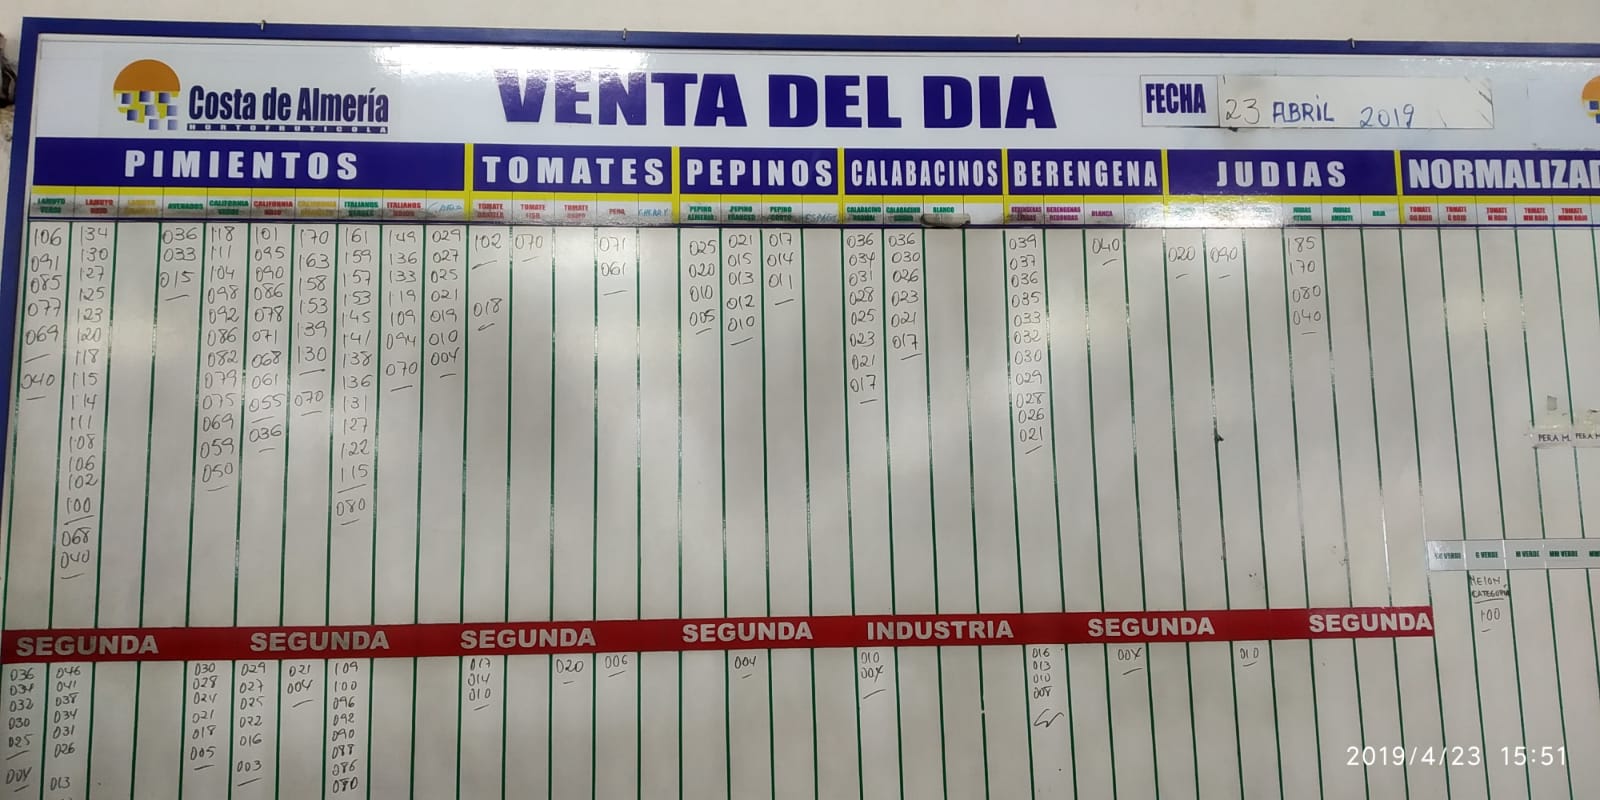 Costa de Almería
HORTOFRUTICOLA
VENTA DEL DIA
FECHA 23 ABRIL 2019
PIMIENTOS TOMATES PEPINOS CALABACINOS BERENGENA JUDIAS NORMALIZAD
LAMUYO VERDE
106
091
085
077
069
040
LAMUYO ROJO
134
130
127
125
123
120
118
115
114
111
108
106
102
100
068
040
ASURADOS
036
033
015
CALIFORNIA VERDE
118
111
104
098
092
086
082
079
075
069
059
050
CALIFORNIA ROJO
101
095
090
086
078
071
068
061
055
036
CALIFORNIA
170
163
158
153
139
130
070
ITALIANOS VERDES
161
159
157
153
145
141
138
136
131
127
122
115
080
ITALIANOS ROJOS
149
136
133
119
109
094
070
029
027
025
021
019
010
004
TOMATE
102
018
TOMATE LISO
070
TOMATE
PERA
071
061
CHERRY
PEPINO ALMERIA
025
020
010
005
PEPINO FRANCES
021
015
013
012
010
PEPINO CORTO
017
014
011
CALABACINO
036
034
031
028
025
023
021
017
CALABACINO
036
030
026
023
021
017
BLANCO
BERENGENAS
039
037
036
035
033
032
030
029
028
026
021
BERENGENAS REDONDAS
BLANCA
040
020
090
JUDIAS
185
170
080
040
JUDIAS
ROJA
TOMATE GG ROJO
TOMATE G ROJO
TOMATE M ROJO
TOMATE MM ROJO
TOMATE
PERA M.
PERA M
G VERDE
M VERDE
MM VERDE
MELON
CATEGORIA
100
SEGUNDA SEGUNDA SEGUNDA SEGUNDA INDUSTRIA SEGUNDA SEGUNDA
036
034
032
030
025
004
046
041
038
034
031
026
013
030
028
024
021
018
005
029
027
025
022
016
003
021
004
109
100
096
092
090
088
086
080
017
014
010
020
006
004
010
004
016
013
010
008
004
010
2019/4/23 15:51